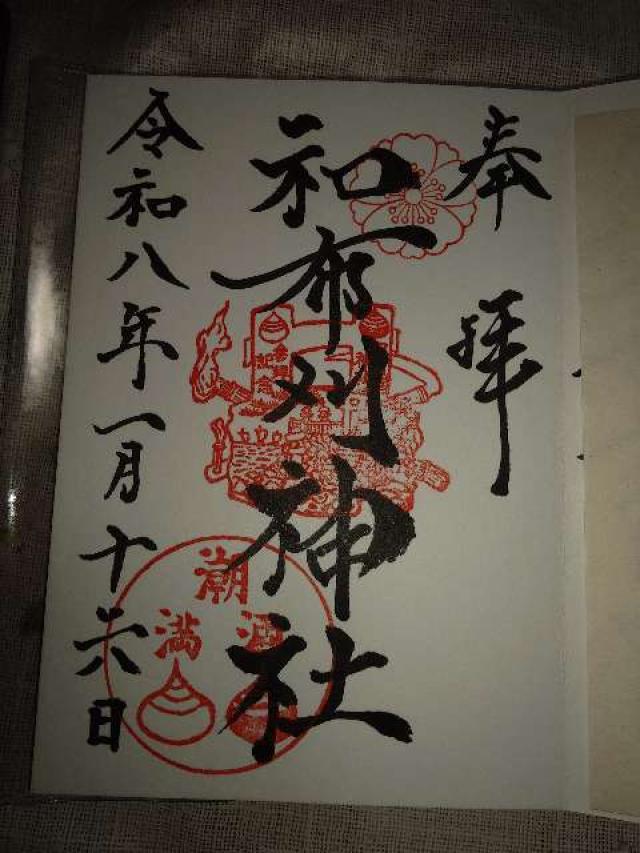 奉拝
和布刈神社
令和八年一月十六日
潮
満